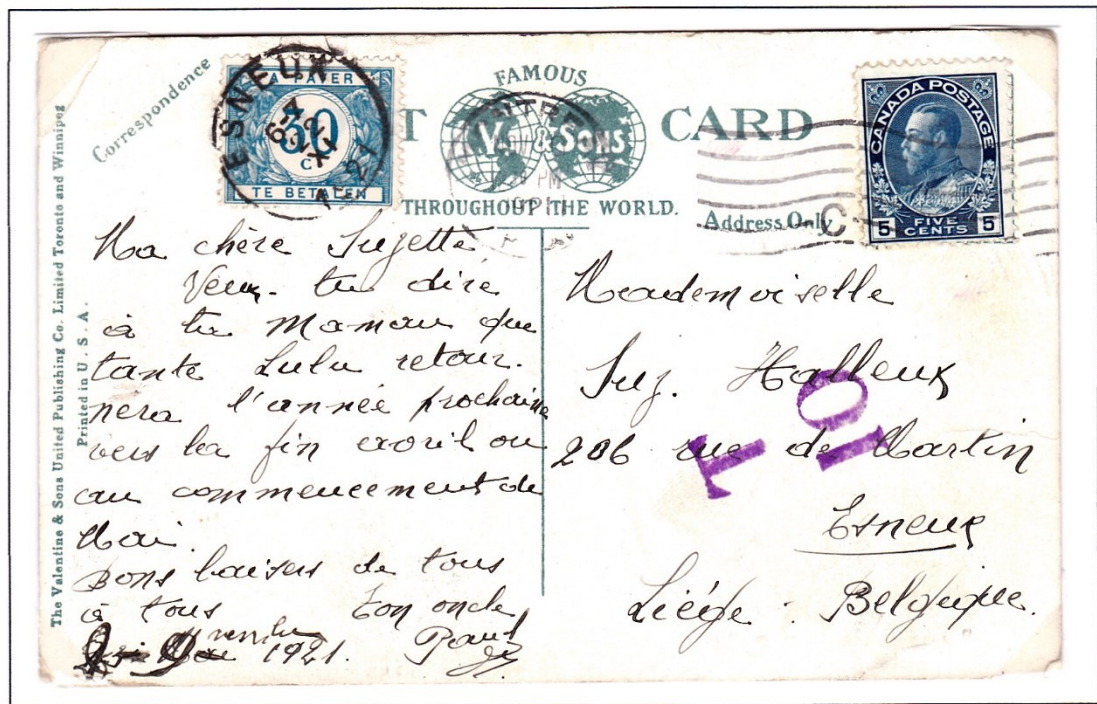 The Valentine & Sons United Publishing Co. Limited Toronto and Winnipeg
Printed in U. S. A.
Correspondence
A PAYER
50
C
TE BETALEN
ESNEUX
FAMOUS
V. & SONS
CARD
THROUGHOUT THE WORLD.
Address Only
CANADA POSTAGE
5 FIVE CENTS 5
Ma chère Suzette
Veux-tu dire
à ta Maman que
tante Lulu retour-
nera l'année prochaine
vers la fin avril ou
au commencement de
Mai.
Bons baisers de tous
à tous ton oncle
1921. Paul
Mademoiselle
Suz. Halleux
206 rue de Martin
Esneux
Liége. Belgique.
T 10